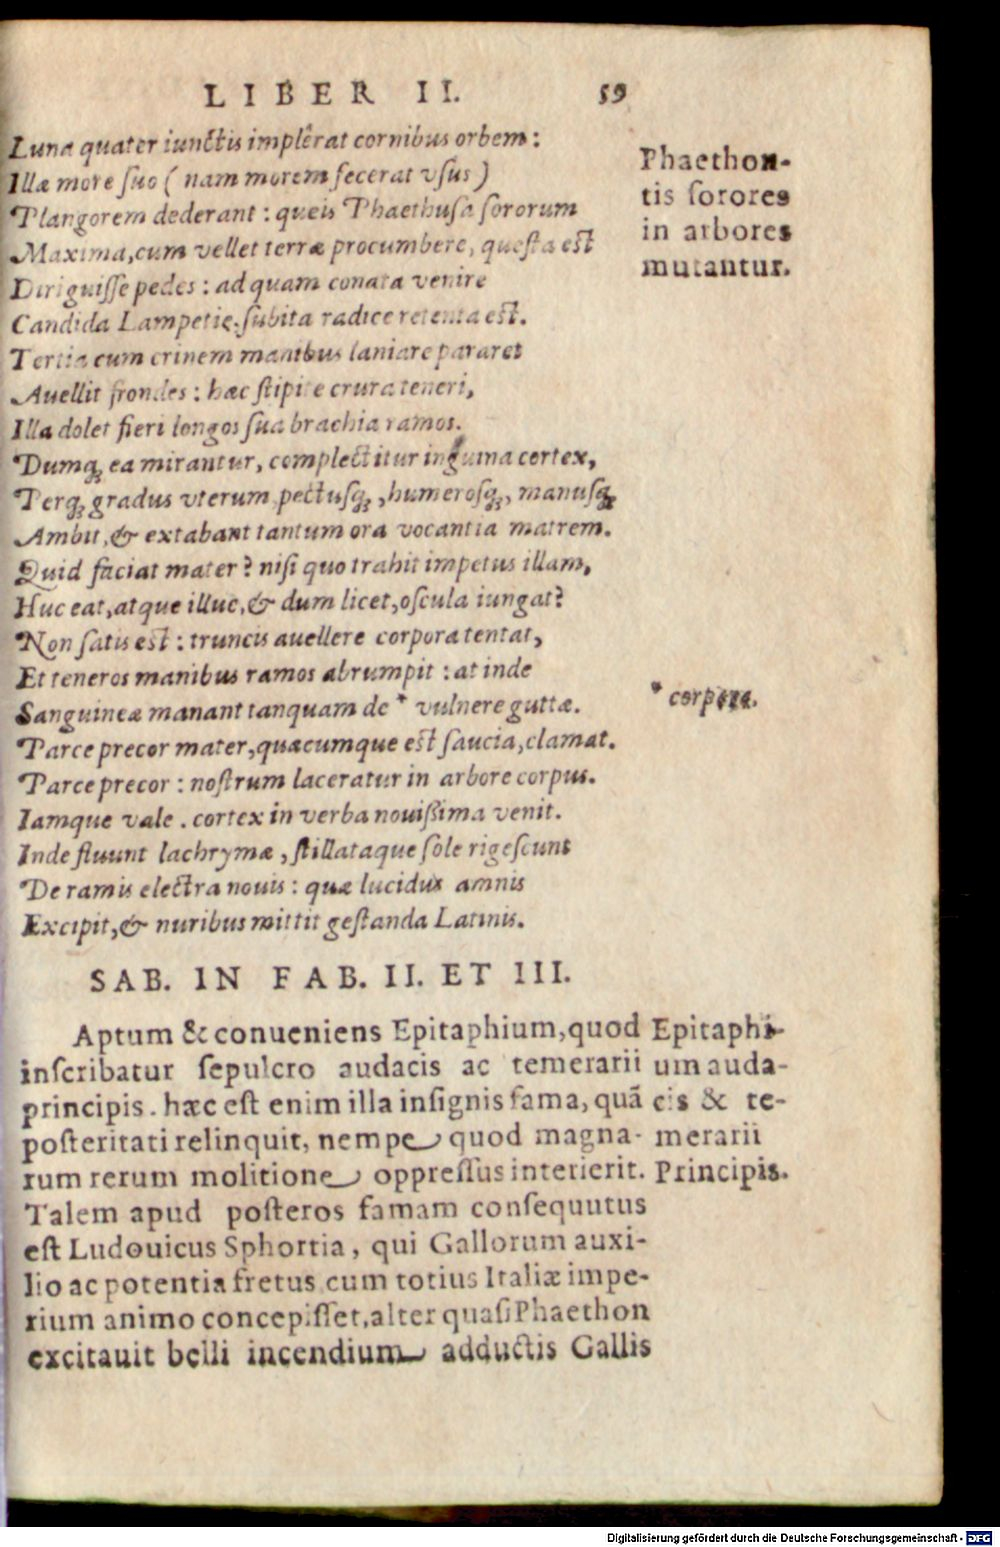 LIBER II. 59
Luna quater iunctis implêrat cornibus orbem:
Illæ more ſuo ( nam morem fecerat vſus )
Plangorem dederant: queis Phaethuſa ſororum
Maxima, cum vellet terræ procumbere, queſta est
Diriguiſſe pedes: ad quam conata venire
Candida Lampetie, ſubita radice retenta est.
Tertia cum crinem manibus laniare pararet
Auellit frondes: hæc ſtipite crura teneri,
Illa dolet fieri longos ſua brachia ramos.
Dumq; ea mirantur, complectitur inguina cortex,
Perq; gradus vterum pectuſq;, humeroſq;, manuſq;
Ambit, & extabant tantum ora vocantia matrem.
Quid faciat mater? niſi quo trahit impetus illam,
Huc eat, atque illuc, & dum licet, oſcula iungat?
Non ſatis est: truncis auellere corpora tentat,
Et teneros manibus ramos abrumpit: at inde
Sanguineæ manant tanquam de * vulnere guttæ.
Parce precor mater, quæcumque est ſaucia, clamat.
Parce precor: noſtrum laceratur in arbore corpus.
Iamque vale. cortex in verba nouiſſima venit.
Inde fluunt lachrymæ, ſtillataque ſole rigeſcunt
De ramis electra nouis: quæ lucidus amnis
Excipit, & nuribus mittit geſtanda Latinis.
Phaethon-
tis ſorores
in arbores
mutantur.
* corpore.
SAB. IN FAB. II. ET III.
Aptum & conueniens Epitaphium, quod
inſcribatur ſepulcro audacis ac temerarii
principis. hæc eſt enim illa inſignis fama, quã
poſteritati relinquit, nempe quod magna-
rum rerum molitione oppreſſus interierit.
Talem apud poſteros famam conſequutus
eſt Ludouicus Sphortia, qui Gallorum auxi-
lio ac potentia fretus cum totius Italiæ impe-
rium animo concepiſſet, alter quaſi Phaethon
excitauit belli incendium adductis Gallis
Epitaphi-
um auda-
cis & te-
merarii
Principis.
Digitalisierung gefördert durch die Deutsche Forschungsgemeinschaft - DFG